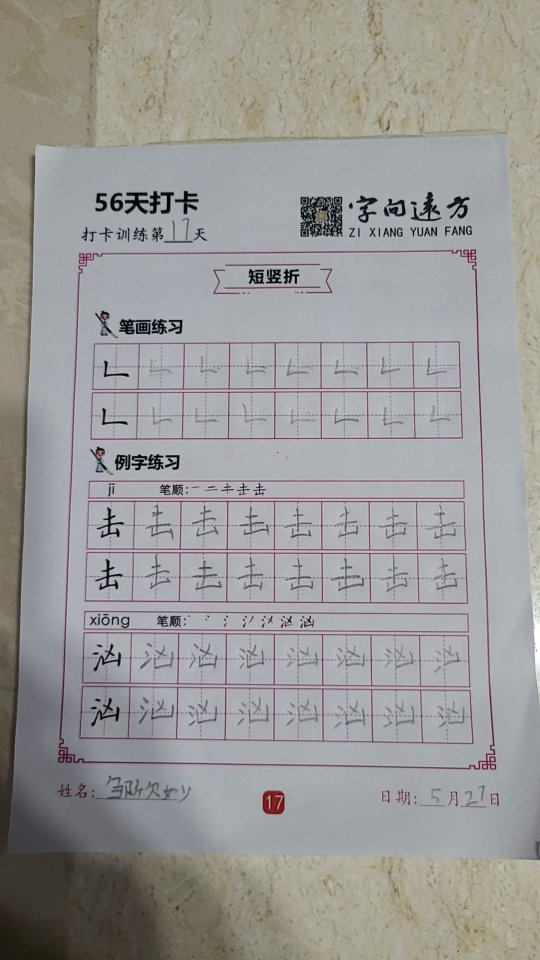 56天打卡
打卡训练第17天
字向远方
ZI XIANG YUAN FANG
短竖折
笔画练习
𠃊 𠃊 𠃊 𠃊 𠃊 𠃊 𠃊 𠃊
𠃊 𠃊 𠃊 𠃊 𠃊 𠃊 𠃊 𠃊
例字练习
jī 笔顺:
击 击 击 击 击 击 击 击
击 击 击 击 击 击 击 击
xiōng 笔顺:
汹 汹 汹 汹 汹 汹 汹 汹
汹 汹 汹 汹 汹 汹 汹 汹
姓名:
17
日期: 5月27日